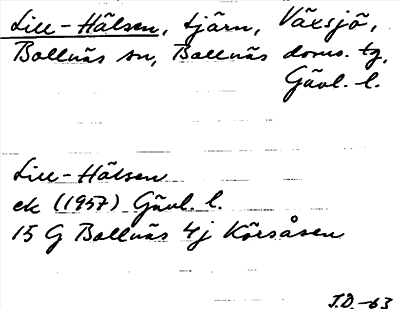 Lill-Hälsen, tjärn, Växsjö,
Bollnäs sn, Bollnäs doms. tg,
Gävl. l.
Lill-Hälsen
ek (1957) Gävl. l.
15 G Bollnäs 4j Körsåsen
J.D. -63